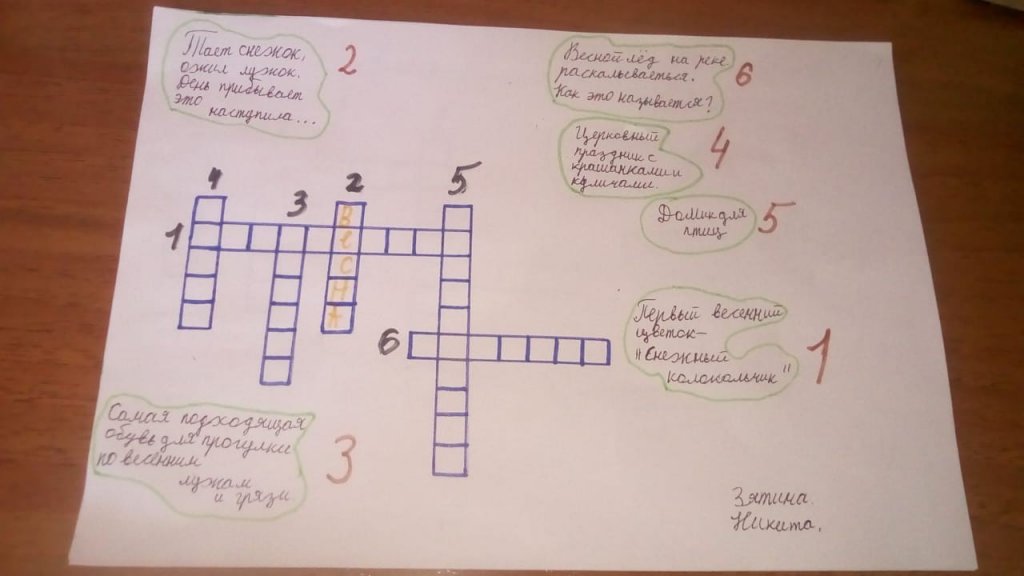 Тает снежок,
ожил лужок.
День прибывает
это наступила...
2
Весной лёд на реке
раскалываеться.
Как это называется?
6
Церковный
праздник с
крашанками и
куличами.
4
Домик для
птиц
5
4
3
2
5
1
В
е
с
н
а
6
Первый весенний
цветок-
"Снежный
колокольчик"
1
Самая подходящая
обувь для прогулки
по весенним
лужам
и грязи
3
Зятина.
Никита.